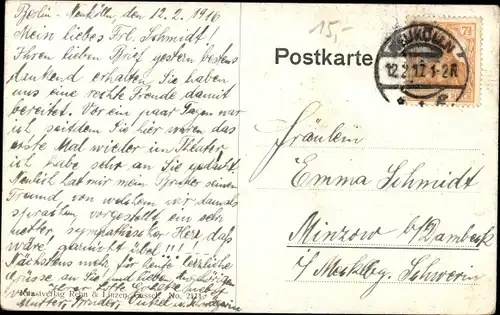 Berlin-Neukölln, den 12.2.1916
Mein liebes Frl. Schmidt!
Ihren lieben Brief gestern bestens
dankend erhalten, Sie haben
uns eine rechte Freude damit
bereitet. Vor ein paar Tagen war
ich seitdem Sie hier waren das
erste Mal wieder im Theater,
ich habe sehr an Sie gedacht.
Neulich hat mir mein Bruder seinen
Freund, von welchem wir damals
sprachen, vorgestellt ein sehr
netter, sympathischer Herr, daß
wäre garnicht übel!!!
Nächstens mehr, für heute herzliche
Grüsse an Sie und
Ihre Lotte nebst
Mutter, Bruder, Onkel u.
Kunstverlag Rehn & Linzen, Cassel. No. 2111.
15,-
Postkarte
NEUKÖLLN
12.2.17.1-2N
7½
Fräulein
Emma Schmidt
Minzow b/Dambeck
i/Mecklbg. Schwerin